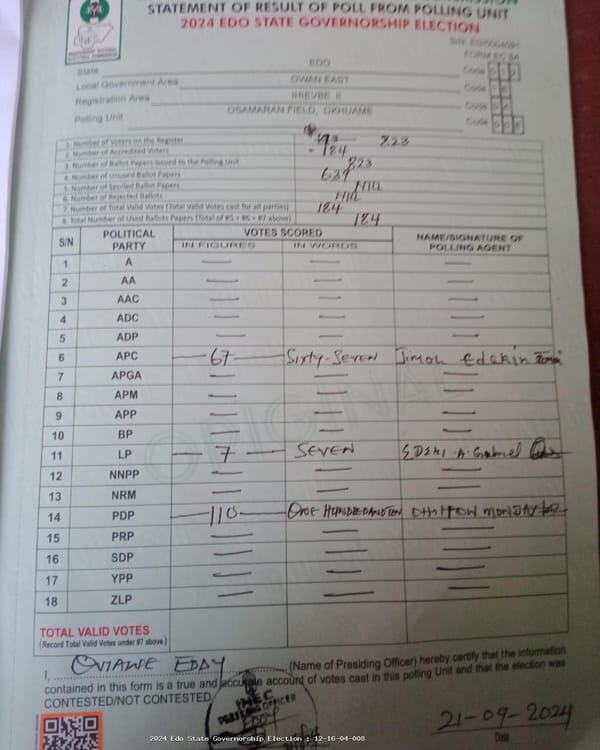 STATEMENT OF RESULT OF POLL FROM POLLING UNIT
2024 EDO STATE GOVERNORSHIP ELECTION
FORM EC 8A
State EDO Code
Local Government Area OWAN EAST Code
Registration Area IHIEVBE II Code
Polling Unit OSAMARAN FIELD, OKHUAME Code
1. Number of Voters on the Register 823
2. Number of Accredited Voters 184
3. Number of Ballot Papers Issued to the Polling Unit 823
4. Number of Unused Ballot Papers 639
5. Number of Spoiled Ballot Papers Nill
6. Number of Rejected Ballots Nill
7. Number of Total Valid Votes (Total Valid Votes cast for all parties) 184
8. Total Number of Used Ballots Papers (Total of #5 + #6 + #7 above) 184
S/N POLITICAL PARTY VOTES SCORED NAME/SIGNATURE OF POLLING AGENT
IN FIGURES IN WORDS
1 A — — —
2 AA — — —
3 AAC — — —
4 ADC — — —
5 ADP — — —
6 APC — 67 — Sixty-Seven Jimoh
7 APGA — — —
8 APM — — —
9 APP — — —
10 BP — — —
11 LP — 7 — SEVEN A. Gabriel
12 NNPP — — —
13 NRM — — —
14 PDP — 110 — ONE HUNDREDANDTEN MONDAY
15 PRP — — —
16 SDP — — —
17 YPP — — —
18 ZLP — — —
TOTAL VALID VOTES
(Record Total Valid Votes under #7 above)
I, OVIAWE EDDY (Name of Presiding Officer) hereby certify that the information
contained in this form is a true and accurate account of votes cast in this polling Unit and that the election was
CONTESTED/NOT CONTESTED
INEC
PRESIDING OFFICER
21-09-2024
Date
2024 Edo State Governorship Election : 12-16-04-008
ORIGINAL